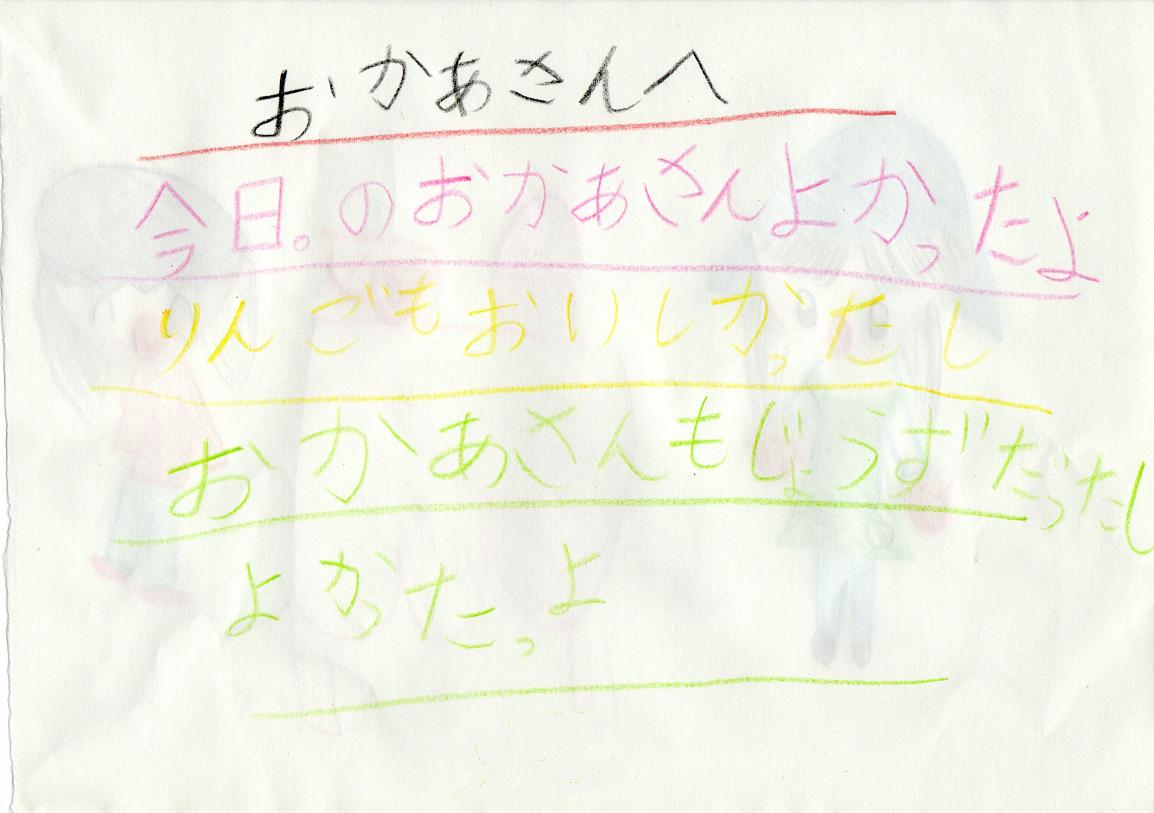 おかあさんへ
今日。のおかあさんよかったよ
りんごもおいしかったし
おかあさんもじょうずだったし
よかったっよ